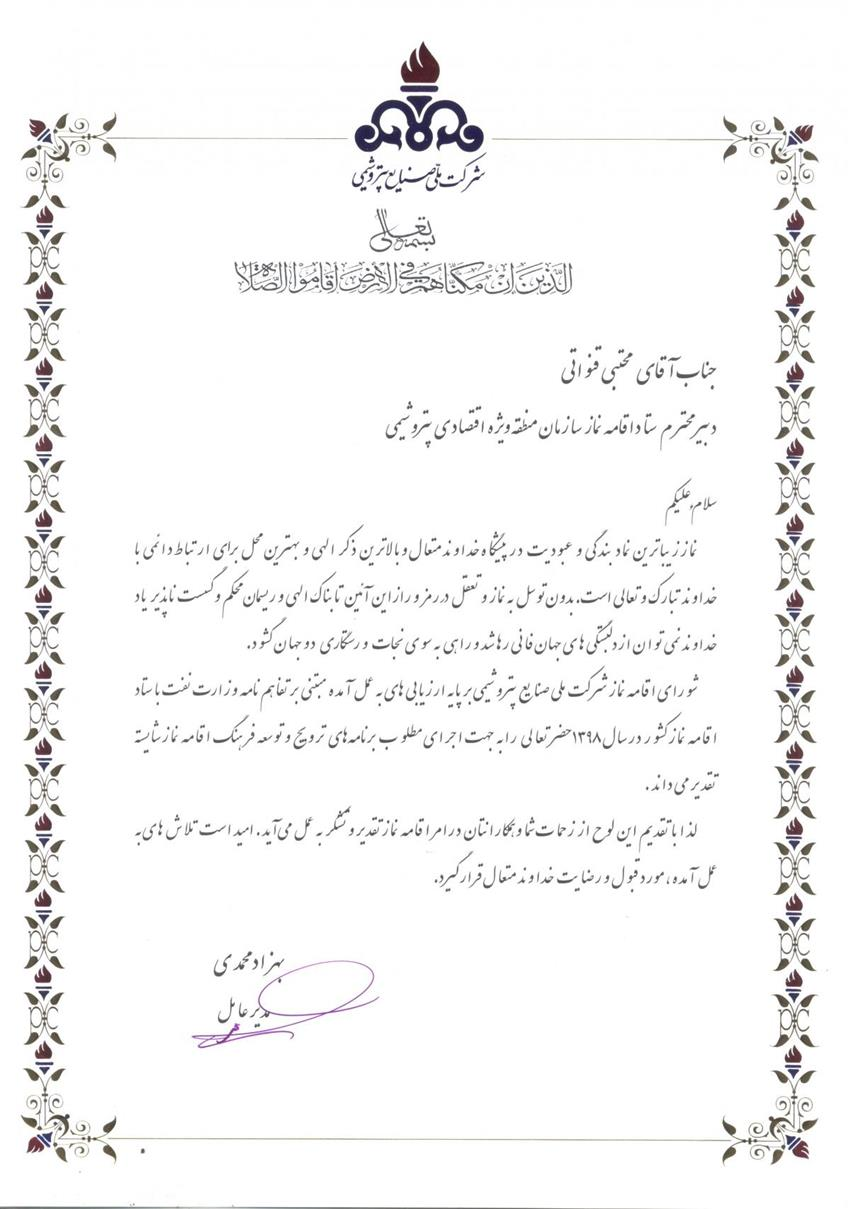 شرکت ملی صنایع پتروشیمی
بسمه تعالی
الذین ان مکناهم فی الارض اقاموا الصلاة
جناب آقای مجتبی قنواتی
دبیر محترم ستاد اقامه نماز سازمان منطقه ویژه اقتصادی پتروشیمی
سلام علیکم
نماز زیباترین نماد بندگی و عبودیت در پیشگاه خداوند متعال و بالاترین ذکر الهی و بهترین محل برای ارتباط دائمی با
خداوند تبارک و تعالی است. بدون توسل به نماز و تعقل در رمز و راز این آئین تابناک الهی و ریسمان محکم و گسست ناپذیر یاد
خداوند نمی توان از دلبستگی های جهان فانی رها شد و راهی به سوی نجات و رستگاری دو جهان گشود.
شورای اقامه نماز شرکت ملی صنایع پتروشیمی بر پایه ارزیابی های به عمل آمده مبتنی بر تفاهم نامه وزارت نفت با ستاد
اقامه نماز کشور در سال ۱۳۹۸ حضرتعالی را به جهت اجرای مطلوب برنامه های ترویج و توسعه فرهنگ اقامه نماز شایسته
تقدیر می داند.
لذا با تقدیم این لوح از زحمات شما و همکارانتان در امر اقامه نماز تقدیر و تشکر به عمل می آید. امید است تلاش های به
عمل آمده، مورد قبول و رضایت خداوند متعال قرار گیرد.
بهزاد محمدی
مدیر عامل